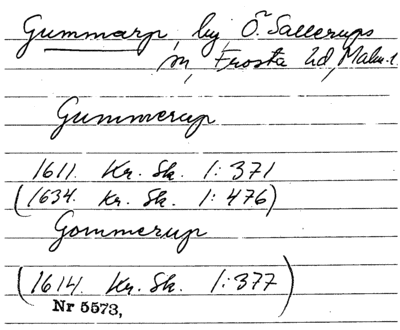 Gummarp, by Ö. Sallerups
sn, Frosta hd, Malm. l.
Gummerup
1611. Kr. Sk. 1: 371
(1634. Kr. Sk. 1: 476)
Gommerup
(1614. Kr. Sk. 1: 377)
Nr 5573,